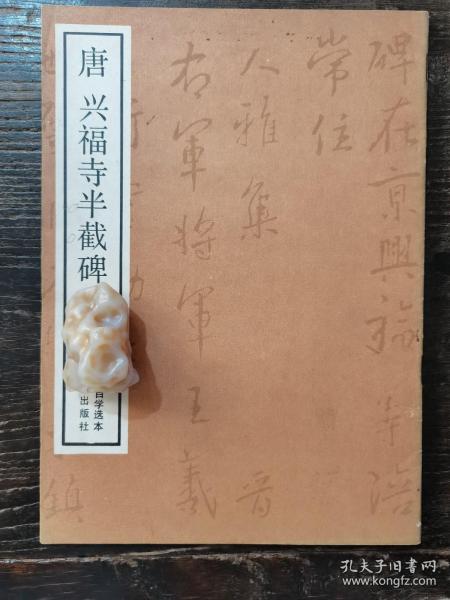 唐 兴福寺半截碑
自学选本
出版社
碑在京興福寺
常住
人雅集 晋
右軍將軍王羲
鎮
孔夫子旧书网
www.kongfz.com